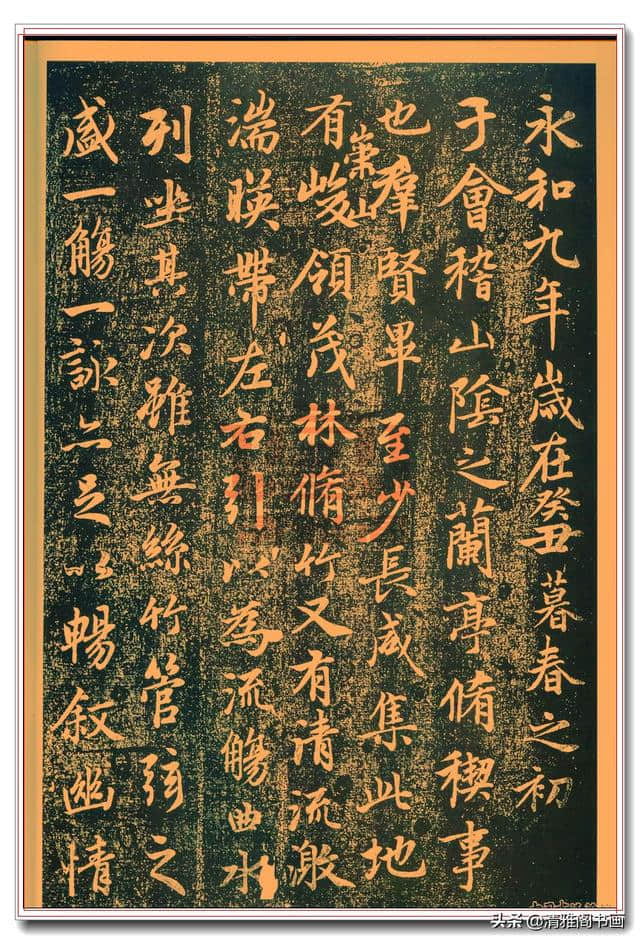 永和九年歲在癸丑暮春之初
于會稽山陰之蘭亭脩稧事
也羣賢畢至少長咸集此地
有崇山峻領茂林脩竹又有清流激
湍暎帶左右引以為流觴曲水
列坐其次雖無絲竹管弦之
盛一觴一詠亦足以暢叙幽情
头条 @清雅阁书画